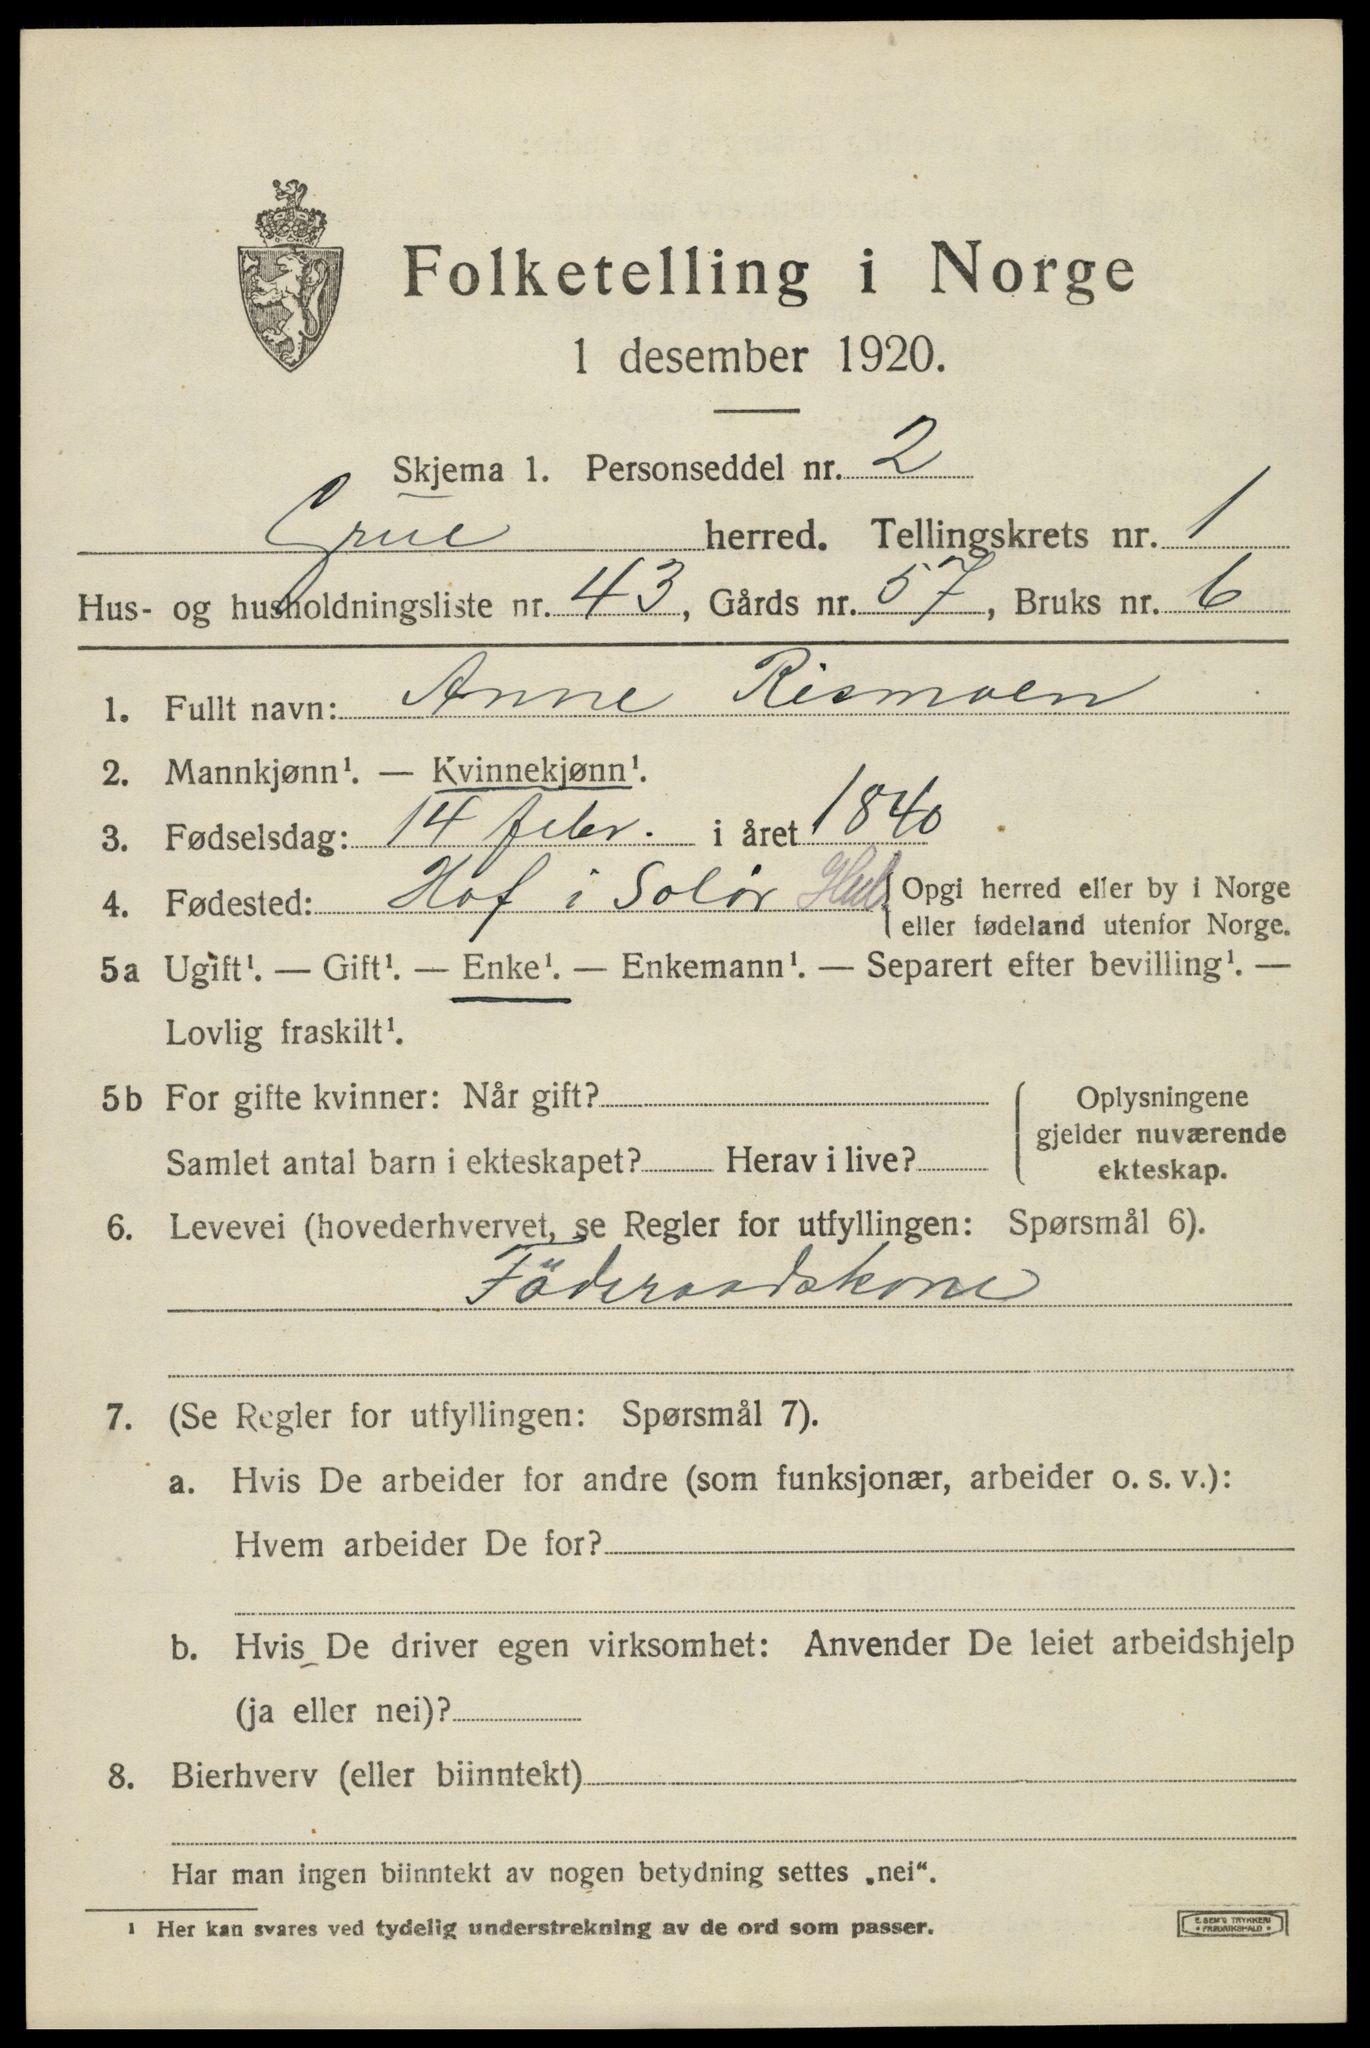 Folketelling i Norge
1 desember 1920.
Skjema 1. Personseddel nr. 2
Grue herred. Tellingskrets nr. 1
Hus- og husholdningsliste nr. 43, Gårds nr. 57, Bruks nr. 6
1. Fullt navn: Anne Rismoen
2. Mannkjønn¹. — Kvinnekjønn¹.
3. Fødselsdag: 14 febr. i året 1840
4. Fødested: Hof i Solør { Opgi herred eller by i Norge
eller fødeland utenfor Norge.
5a Ugift¹. — Gift¹. — Enke¹. — Enkemann¹. — Separert efter bevilling¹. —
Lovlig fraskilt¹.
5b For gifte kvinner: Når gift?
Samlet antal barn i ekteskapet? Herav i live?
Oplysningene
gjelder nuværende
ekteskap.
6. Levevei (hovederhvervet, se Regler for utfyllingen: Spørsmål 6).
Föderaadskone
7. (Se Regler for utfyllingen: Spørsmål 7).
a. Hvis De arbeider for andre (som funksjonær, arbeider o. s. v.):
Hvem arbeider De for?
b. Hvis De driver egen virksomhet: Anvender De leiet arbeidshjelp
(ja eller nei)?
8. Bierhverv (eller biinntekt)
Har man ingen biinntekt av nogen betydning settes „nei“.
¹ Her kan svares ved tydelig understrekning av de ord som passer.
E. SEM'S TRYKKERI
FREDRIKSHALD